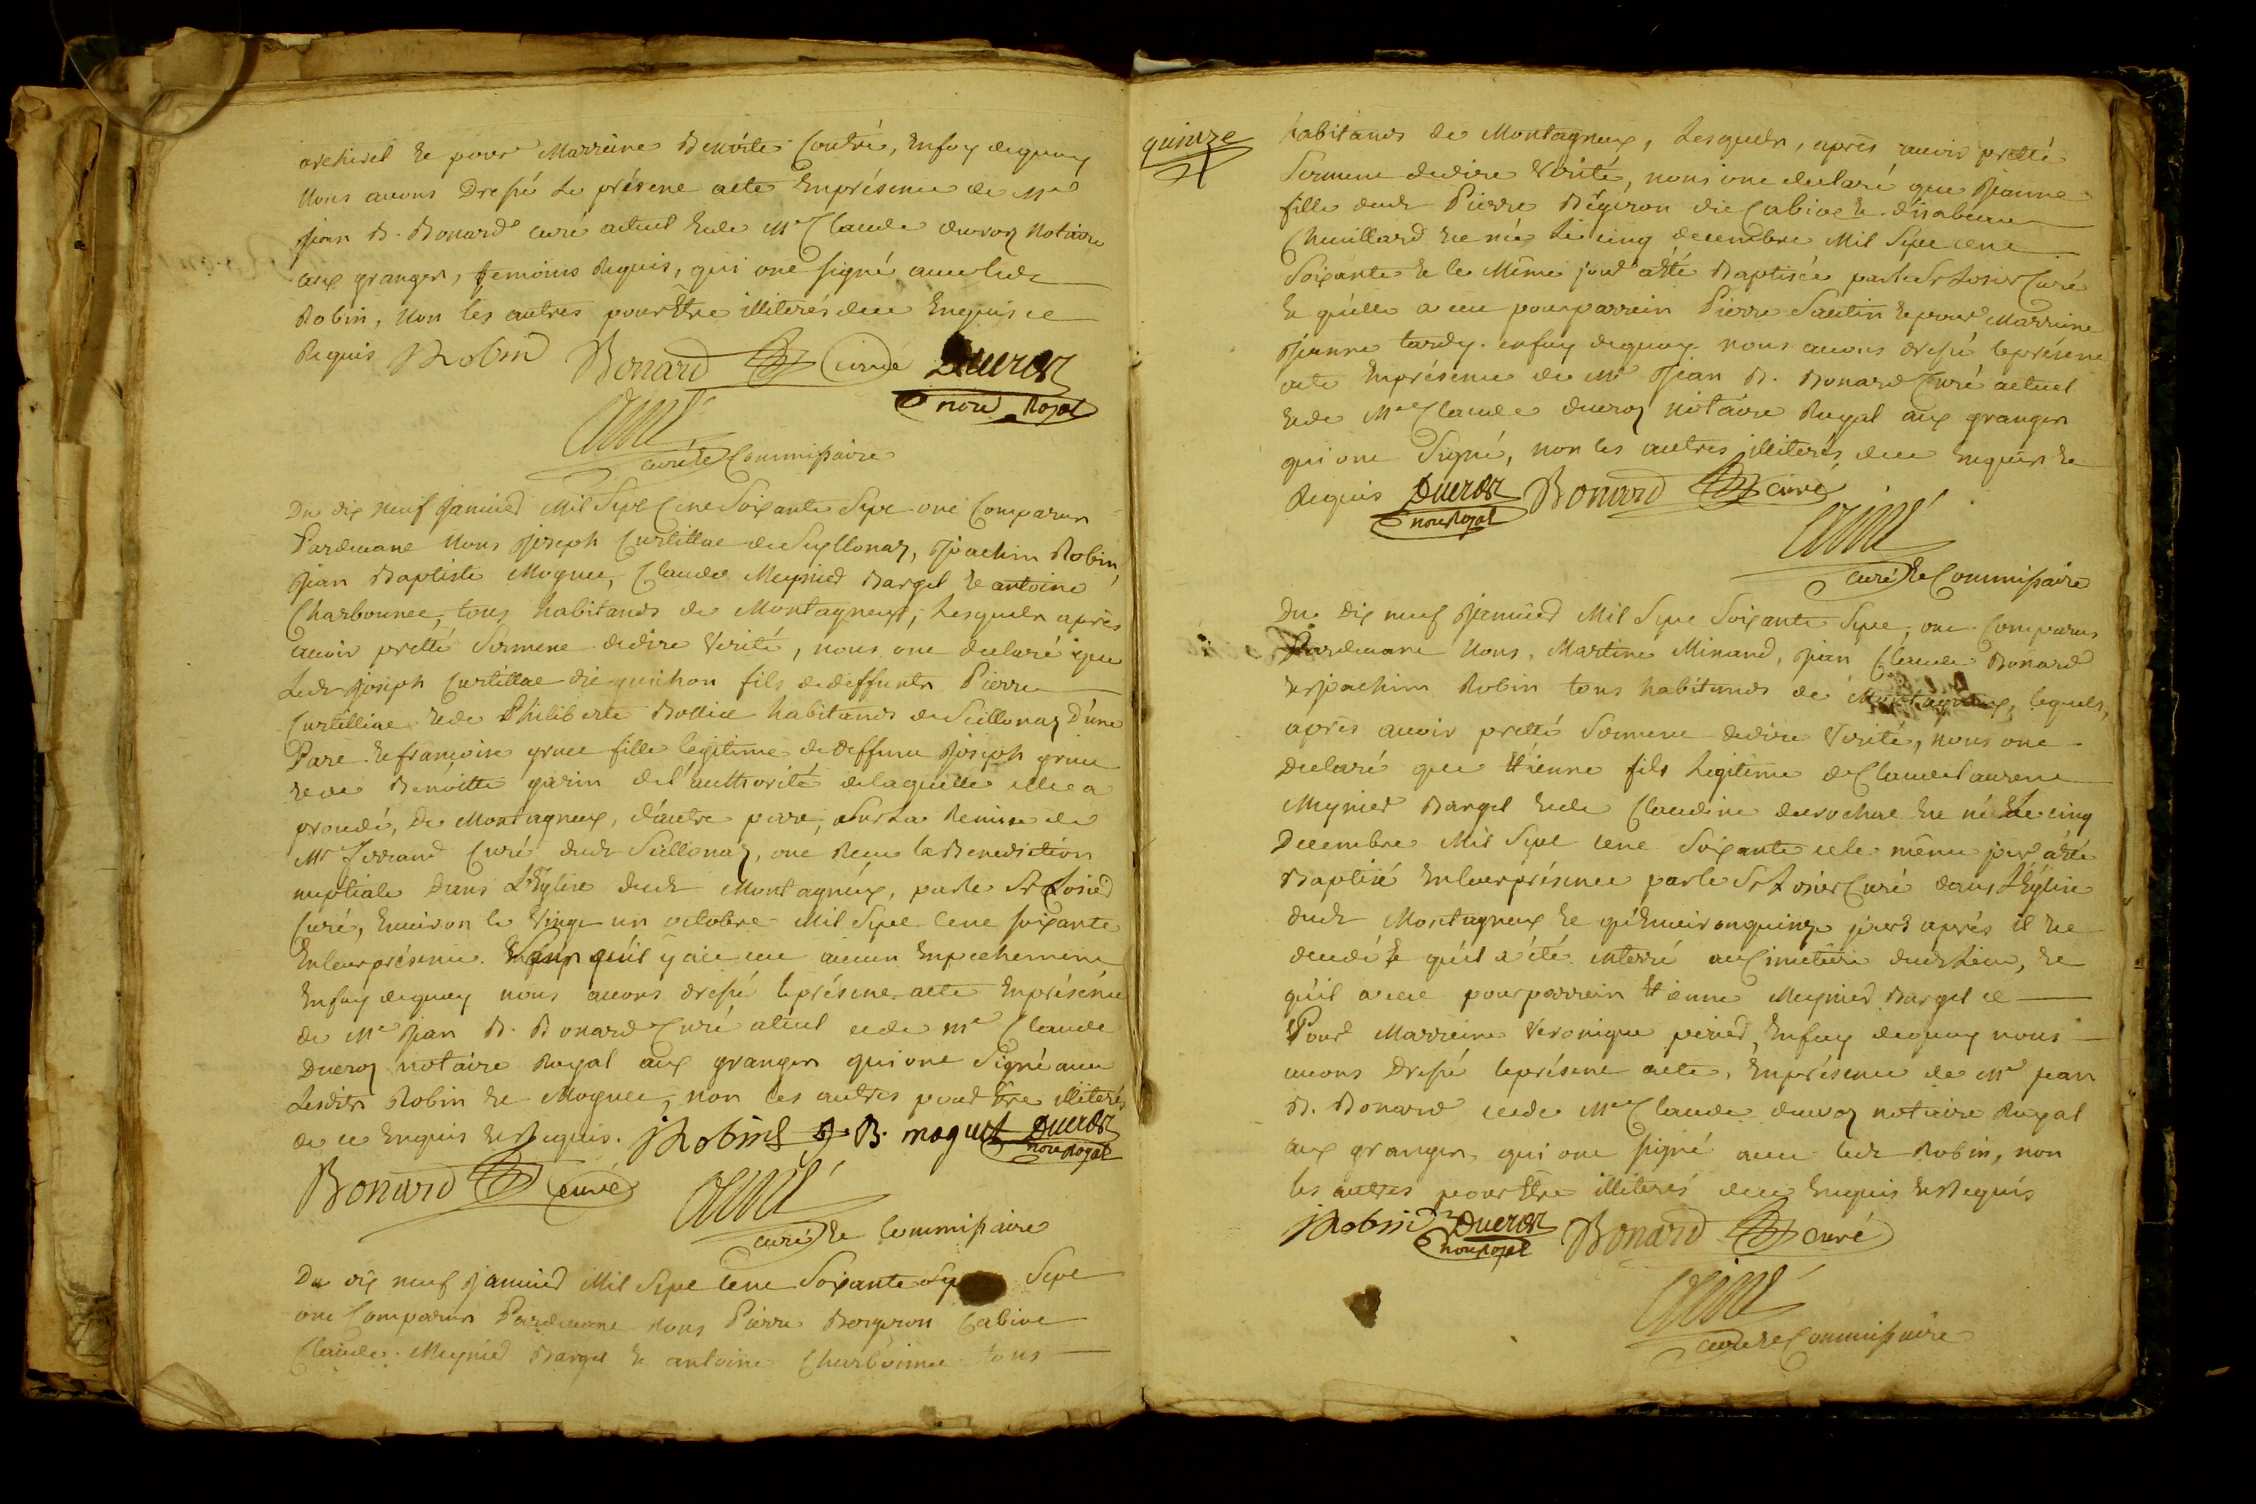 archirel et pour Marreine Benoite Contré, Enfoy dequoy
Nous avons Dressé Le présent acte Enprésence de Mre
Jean B. Bonard curé actuel Et de Me Claude ducroz Notaire
aux granges, temoins Requis, qui ont signé avec ledt
Robin, Non les autres pour Etre illiterés de ce Enquis et
Requis JRobin Bonard Curé Ducroz
nore Royal
curé et Commissaire
Du dix neuf Janvier Mil Sept Cent Soixante Sept ont Comparus
Pardevant Nous Joseph Curtillat de Seyllonaz, Joachim Robin,
Jean Baptiste Moguet, Claude Meynier Barget Et antoine
Charbonnet, tous habitands de Montagneux, Lesquels après
avoir pretté Serment de dire Verité, nous ont declaré que
Ledt Joseph Curtillat dit quichon fils de deffunts Pierre
Curtilliat et de Philiberte Bottiex habitands de Seillonaz D'une
Part Et françoise gruet fille legitime de deffunt Joseph gruet
et de Benoitte garin de l'authorité de laquelle elle a
procedé, de Montagneux, d'autre part, Sur La Remise de
Mr ferrand Curé dudt Seillonaz, ont Receu la Benediction
nuptiale dans L'Eglise dudt Montagneux, par le Sr Losier
Curé, Environ le Vingt un octobre Mil Sept Cent soixante
En leur présence. Sans qu'il y aie eu aucun Empechement
Enfoy dequoy nous avons dressé le présent acte Enprésence
de Me Jean B. Bonard Curé actuel et de Me Claude
Ducroz notaire Royal aux granges qui ont Signé avec
Lesdits Robin Et Moguet, non les autres pour Etre illiterés
de ce Enquis Et Requis. JRobin J. B. moguet Ducroz
nore Royal
Bonard Curé
curé Et Commissaire
Du dix neuf Janvier Mil Sept Cent Soixante Sept
ont Comparus Pardevant Nous Pierre Bergeron Cabive
Claude Meynier Barget Et antoine Charbonnet tous
quinze
habitands de Montagneux, Lesquels, après avoir pretté
Serment de dire Verité, nous ont declaré que Jeanne
fille dudt Pierre Bergeron dit Cabive Et d'isabeau
Chevillard Et née Le cinq decembre Mil Sept cent
Soixante Et le Même jour a été Baptisée par le Sr Losier Curé
Et qu'elle a eu pour parrein Pierre Sautin Et pour Marreine
Jeanne tardy. enfoy dequoy nous avons dressé le présent
acte Enprésence de Mre Jean B. Bonard Curé actuel
Et de Me Claude ducroz notaire Royal aux granges
qui ont Signé, non les autres illiterés de ce Enquis Et
Requis Ducroz Bonard Curé
nore Royal
curé Et Commissaire
Du dix neuf Janvier Mil Sept Soixante Sept, ont Comparus
Pardevant Nous, Martine Minand, Jean Claude Bonard
Et Joachim Robin tous habitands de Montagneux, lequels,
après avoir pretté Serment de dire Verité, nous ont
Declaré que Etienne fils Legitime de Claude Laurent
Meynier Barget Et de Claudine durochat Et né Le cinq
Decembre Mil Sept cent Soixante et le même jour a été
Baptisé En leur présence par le Sr Losier Curé dans L'Eglise
dudt Montagneux Et qu'Environ quinze jours après il Et
decedé Et qu'il a été enterré au Cimetiere dudt Lieu, Et
qu'il a eu pour parrein Etienne Meynier Barget et
Pour Marreine Veronique perier, Enfoy dequoy nous
avons Dressé le présent acte, Enprésence de Mre jean
B. Bonard et de Me Claude ducroz notaire Royal
aux granges qui ont signé avec ledt Robin, non
les autres pour Etre illiterés de ce Enquis Et Requis
JRobin Ducroz Bonard Curé
nore Royal
curé Et Commissaire